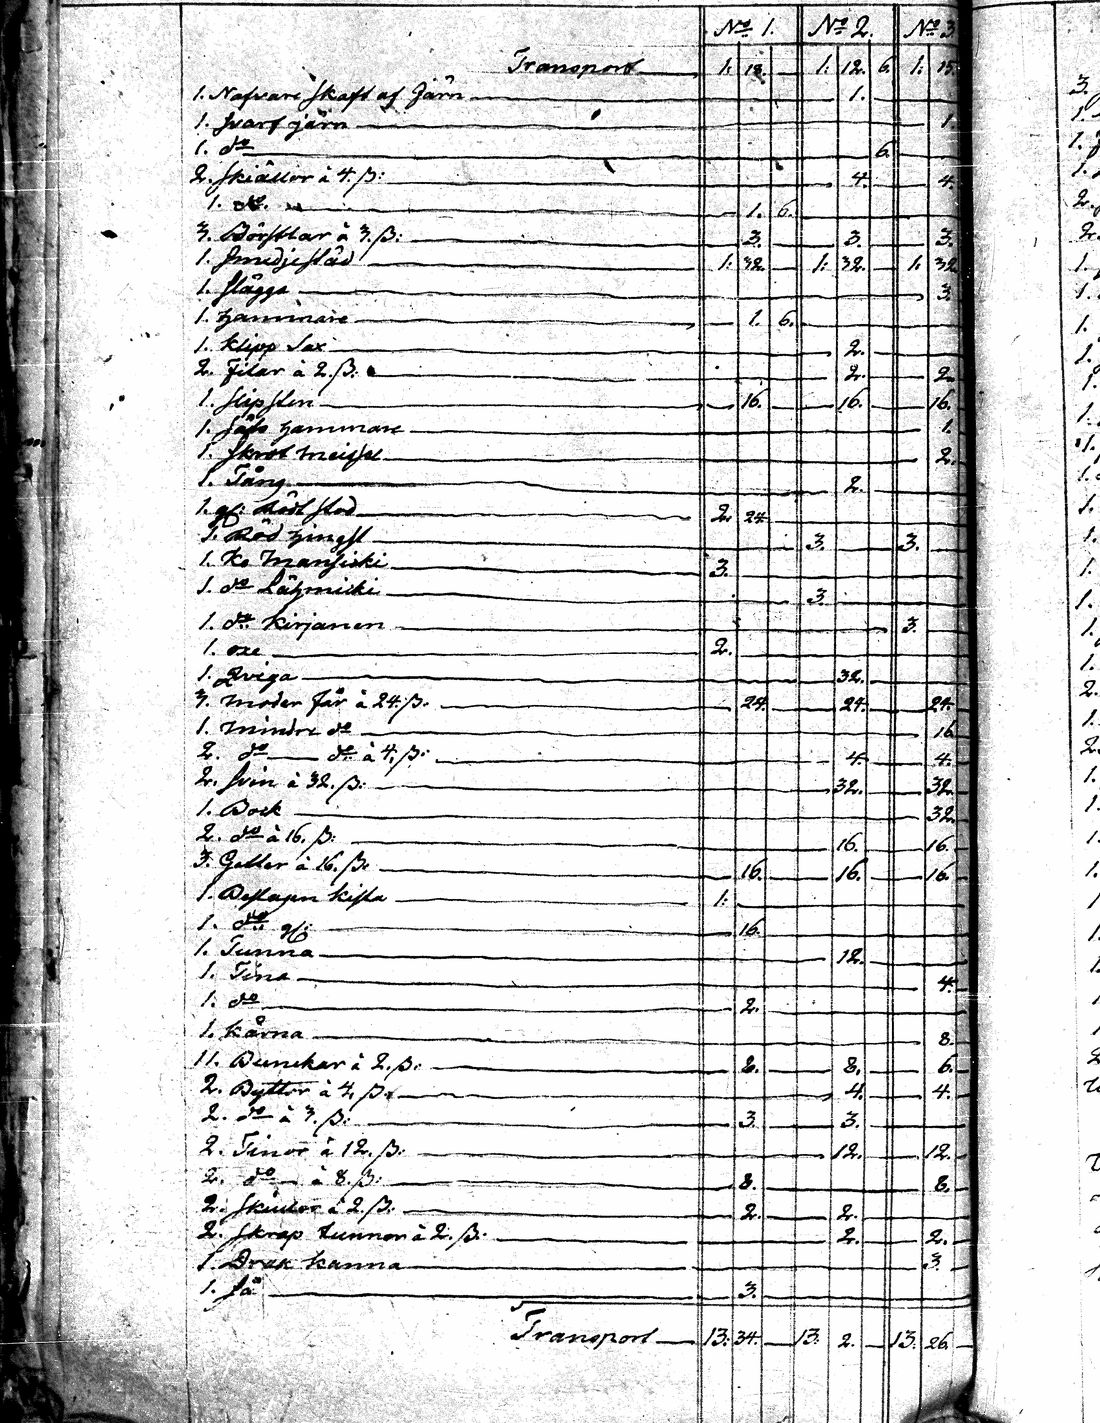 No 1. No 2. No 3.
Transport 1: 18. 1: 12. 6. 1: 15.
1. Nafvare skaft af Järn 1.
1. svarf järn 1.
1. do 6.
2. skiällor à 4. β: 4. 4.
1. do. 1. 6.
3. Börsttar à 3. β: 3. 3. 3.
1. smedjestäd 1: 32. 1: 32. 1: 32.
1. slägga 3.
1. hammare 1. 6.
1. Klipp Sax 2.
2. filar à 2. β: 2. 2.
1. slipsten 16. 16. 16.
1. hammare 1.
1. skrot meissel 2.
1. Tång 2.
1. gl: stod 2. 24.
1. Röd hingst 3. 3.
1. Ko Mansicki 3.
1. do Lähmicki 3.
1. do Kirjanen 3.
1. oxe 2.
1. Qviga 32.
3. moder får à 24. β: 24. 24. 24.
1. mindre do 16.
2. do do à 4. β: 4. 4.
2. svin à 32. β: 32. 32.
1. Bock 32.
2. do à 16. β: 16. 16.
3. Getter à 16. β: 16. 16. 16.
1. Beslagen kista 1:
1. do gl: 16.
1. Tunna 12.
1. Tina 4.
1. do 2.
1. kärna 8.
11. Bunckar à 2. β: 8. 8. 6.
2. Byttor à 4. β: 4. 4.
2. do à 3. β: 3. 3.
2. Tinor à 12. β: 12. 12.
2. do à 8. β: 8. 8.
2. à 2. β: 2. 2.
2. skrap tunnor à 2. β: 2. 2.
1. Drick kanna 3.
1. så 3.
Transport 13: 34. 13. 2. 13. 26.